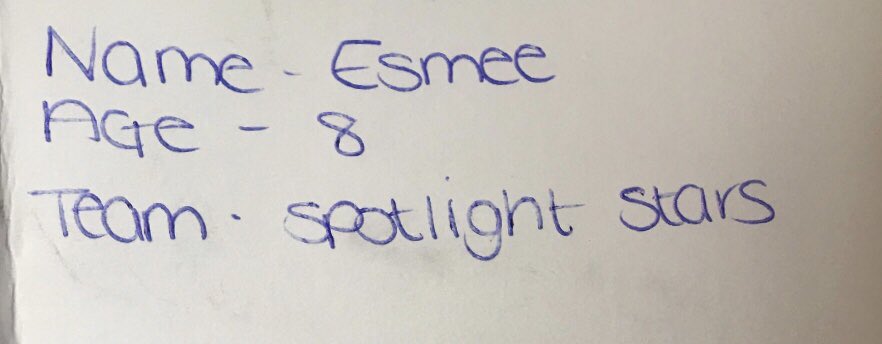 Name - Esmee
AGe - 8
Team - spotlight stars